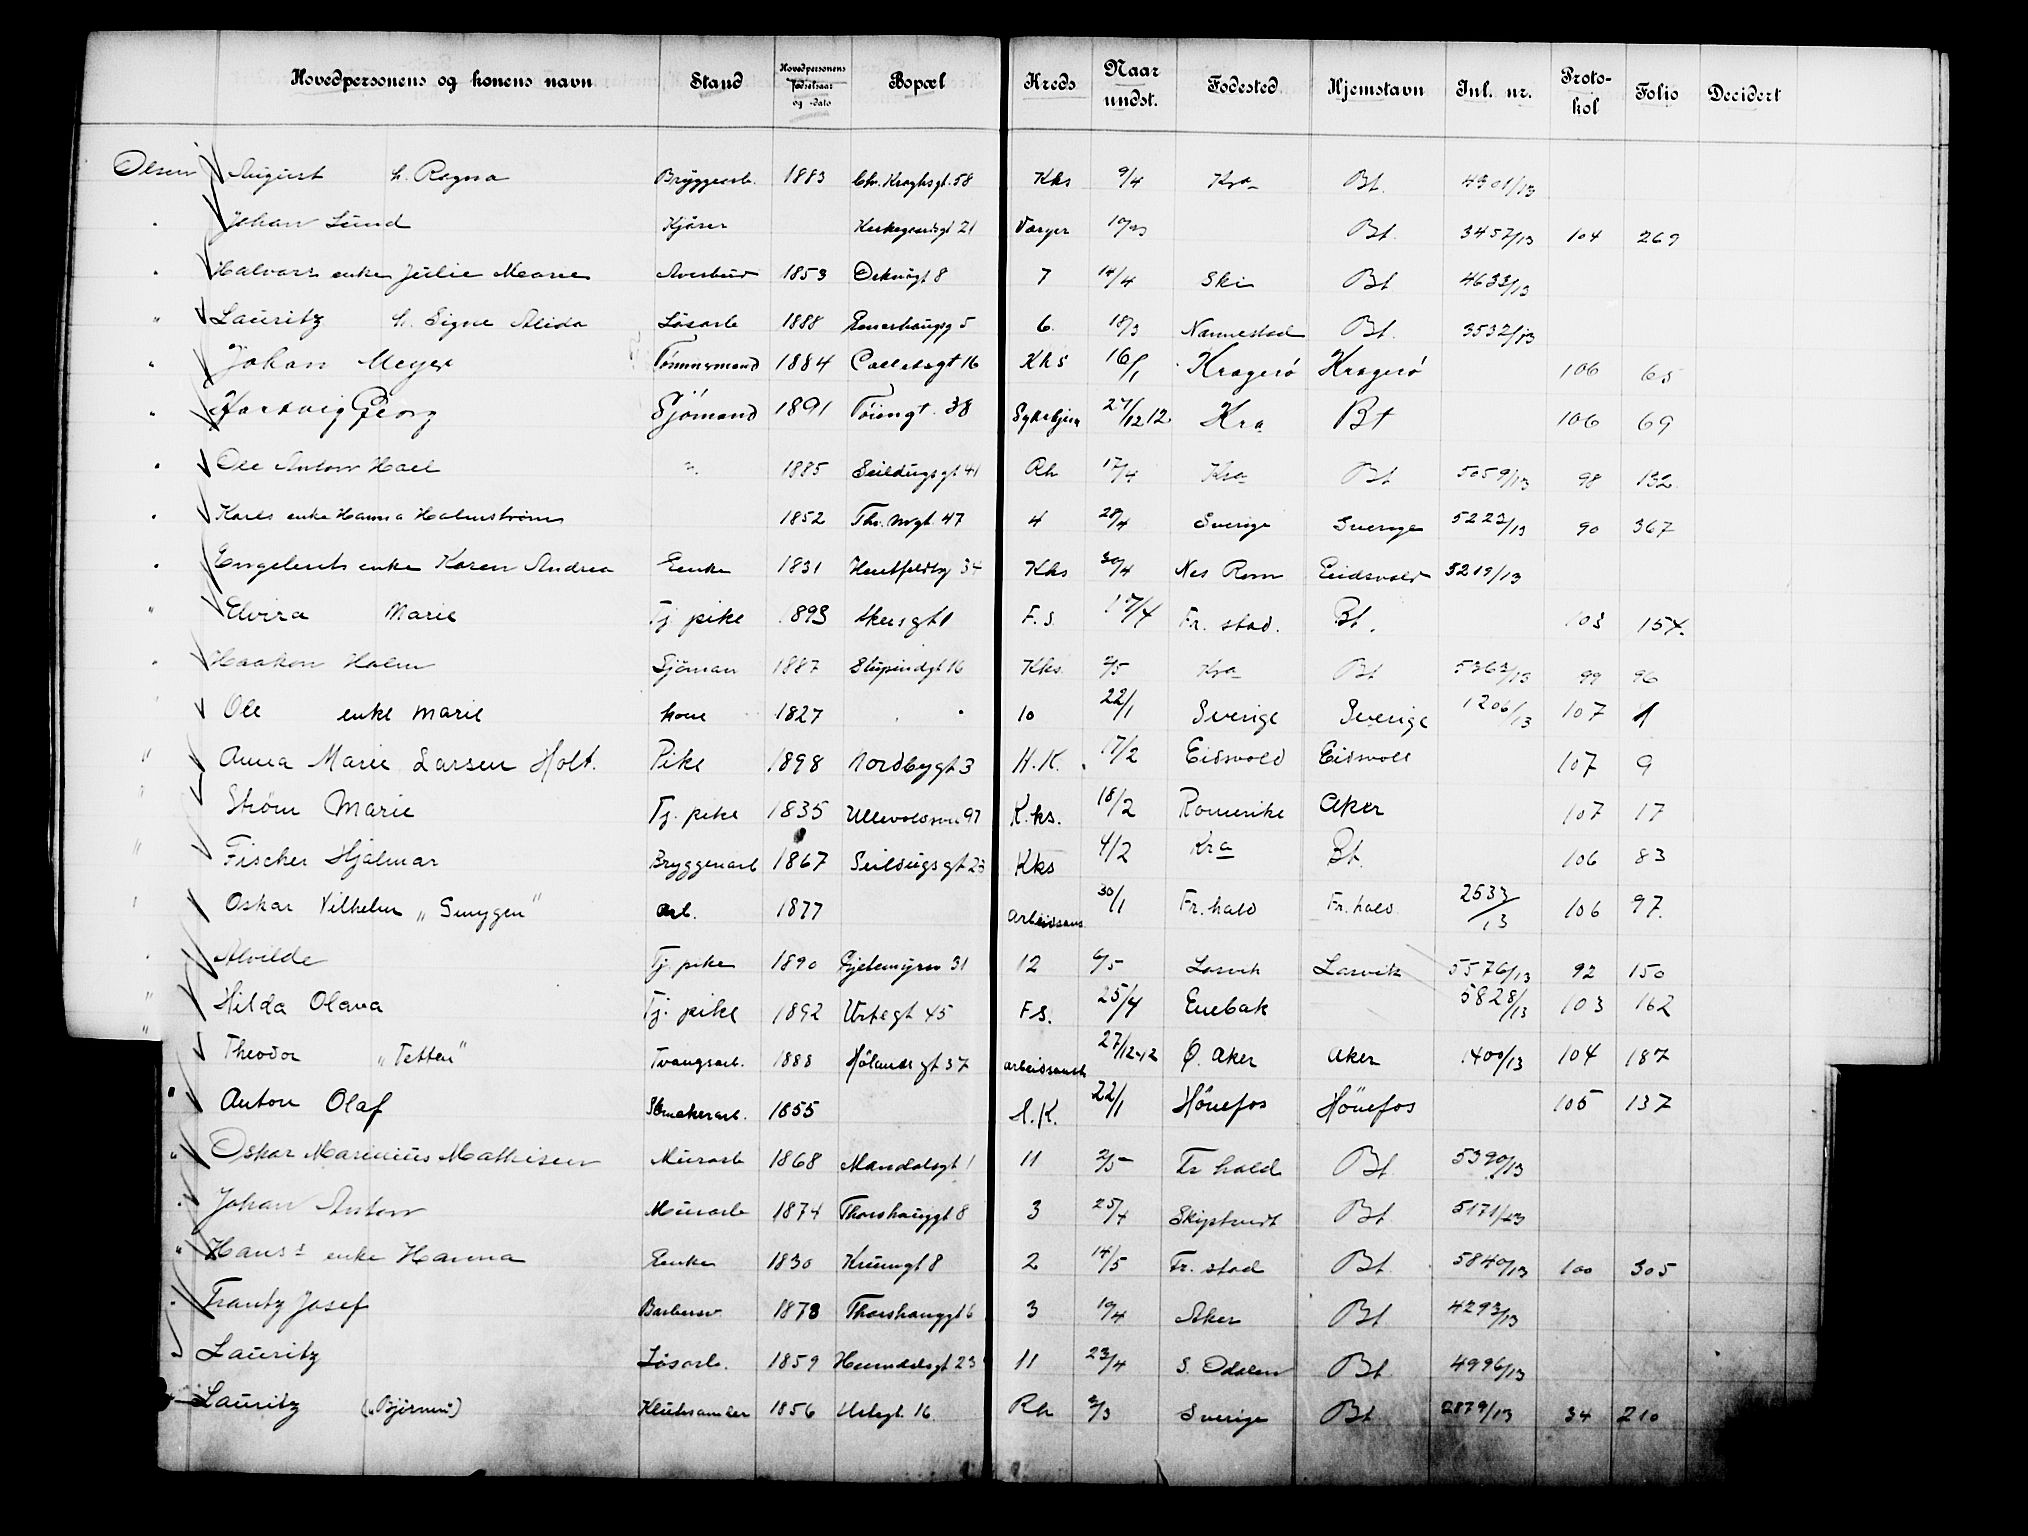 Hovedpersonens og konens navn Stand Hovedpersonens fødselsaar og -dato Bopæl Kreds Naar undst. Fødested Hjemstavn Jnl. nr. Proto-kol Folio Decidert
Olsen August h. Ragna Bryggearb. 1883 Chr. Kroghsgt. 58 Kks 9/4 Kra Bt. 4301/13
" Johan Lund Kjører 21 Værger Bt. 3457/13 104 269
" Halvors enke Julie Marie 1853 8 7 14/4 Ski Bt 4633/13
" Lauritz h. Signe Alida Løsarb 1888 Enerhaugg 5 6. 18/3 Nannestad Bt. 3532/13
" Johan Meyer Tømmermand 1884 16 Kks 16/1 Kragerö Kragerö 106 65
" Hartvig Georg Sjömand 1891 Töiengt. 38 27/12 12 Kra Bt 106 69
" Ole Anton Hael " 1885 Seildugsgt 41 Rh 17/4 Kra Bt 5059/13 98 132
" Karls enke Hanna Holmström 1852 Thv. Mgt. 47 4 28/4 Sverige Sverige 5223/13 90 367
" Engebrets enke Karen Andrea Enke 1831 34 Kks 30/4 Nes Rom Eidsvold 5219/13
" Elvira Marie Tj pike 1893 Akersgt 1 F. S. 17/4 Fr. stad. Bt. 103 154.
" Haakon Holm Sjöman 1887 Stupindgt 16 Kks 2/5 Kra Bt 5363/13 99 96
" Ole enke Marie kone 1827 " " 10 22/1 Sverige Sverige 1206/13 107 1
" Anna Marie Larsen Holt. Pike 1898 Nordbygt 3 H. K. 17/2 Eidsvold Eidsvoll 107 9
" Ström Marie Tj. pike 1835 Ullevoldsvn 97 K. ks. 18/2 Romerike Aker 107 17
" Fischer Hjalmar Bryggearb 1867 Seildugsgt 23 Kks 4/2 Kra Bt. 106 83
" Oskar Vilhelm „Smygen" Arb. 1877 Arbeidsans 30/1 Fr. hald Fr. hald 2533/13 106 97.
" Alvilde Tj. pike 1890 Gjetemyrsv 31 12 6/5 Larvik Larvik 5576/13 92 150
" Hilda Olava Tj. pike 1892 Urtegt 45 F S. 25/4 Enebak 5828/13 103 162
" Theodor „Tetten" Tvangsarb. 1888 Hölandsgt 37 arbeidsanst 27/12-12 Ø. Aker Aker 1400/13 104 187
" Anton Olaf 1855 H. K. 22/1 Hönefos Hönefos 105 137
" Oskar Marinius Mathisen Murarb 1868 Mandalsgt 1 11 2/5 Fr hald Bt 5390/13
" Johan Anton Murarb 1874 Thorshauggt 8 3 25/4 Skiptvedt Bt. 5171/13
" Hans s enke Hanna Enke 1830 Krumgt 8 2 14/5 Fr. stad Bt. 5840/13 100 305
" Frantz Josef Barbersv. 1878 Thorshauggt 6 3 19/4 Aker Bt 4293/13
Lauritz Løsarb. 1859 Heimdalsgt 23 11 23/4 S. Odalen Bt 4996/13
Lauritz („Björnen") Klutsamler 1856 Urtegt. 16 Rh 2/3 Sverige Bt 2879/13 34 210